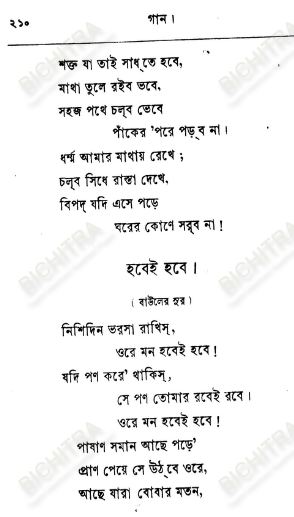 ২১০ গান।
শক্ত যা তাই সাধ্‌তে হবে,
মাথা তুলে রইব ভবে,
সহজ পথে চল্‌ব ভেবে
পাঁকের 'পরে পড়্‌ব না।
ধর্ম্ম আমার মাথায় রেখে;
চল্‌ব সিধে রাস্তা দেখে,
বিপদ্ যদি এসে পড়ে
ঘরের কোণে সর্‌ব না!
হবেই হবে।
(বাউলের সুর)
নিশিদিন ভরসা রাখিস্,
ওরে মন হবেই হবে!
যদি পণ করে' থাকিস্,
সে পণ তোমার রবেই রবে।
ওরে মন হবেই হবে!
পাষাণ সমান আছে পড়ে'
প্রাণ পেয়ে সে উঠ্‌বে ওরে,
আছে যারা বোবার মতন,
BICHITRA
BICHITRA
BICHITRA
BICHITRA
BICHITRA
BICHITRA